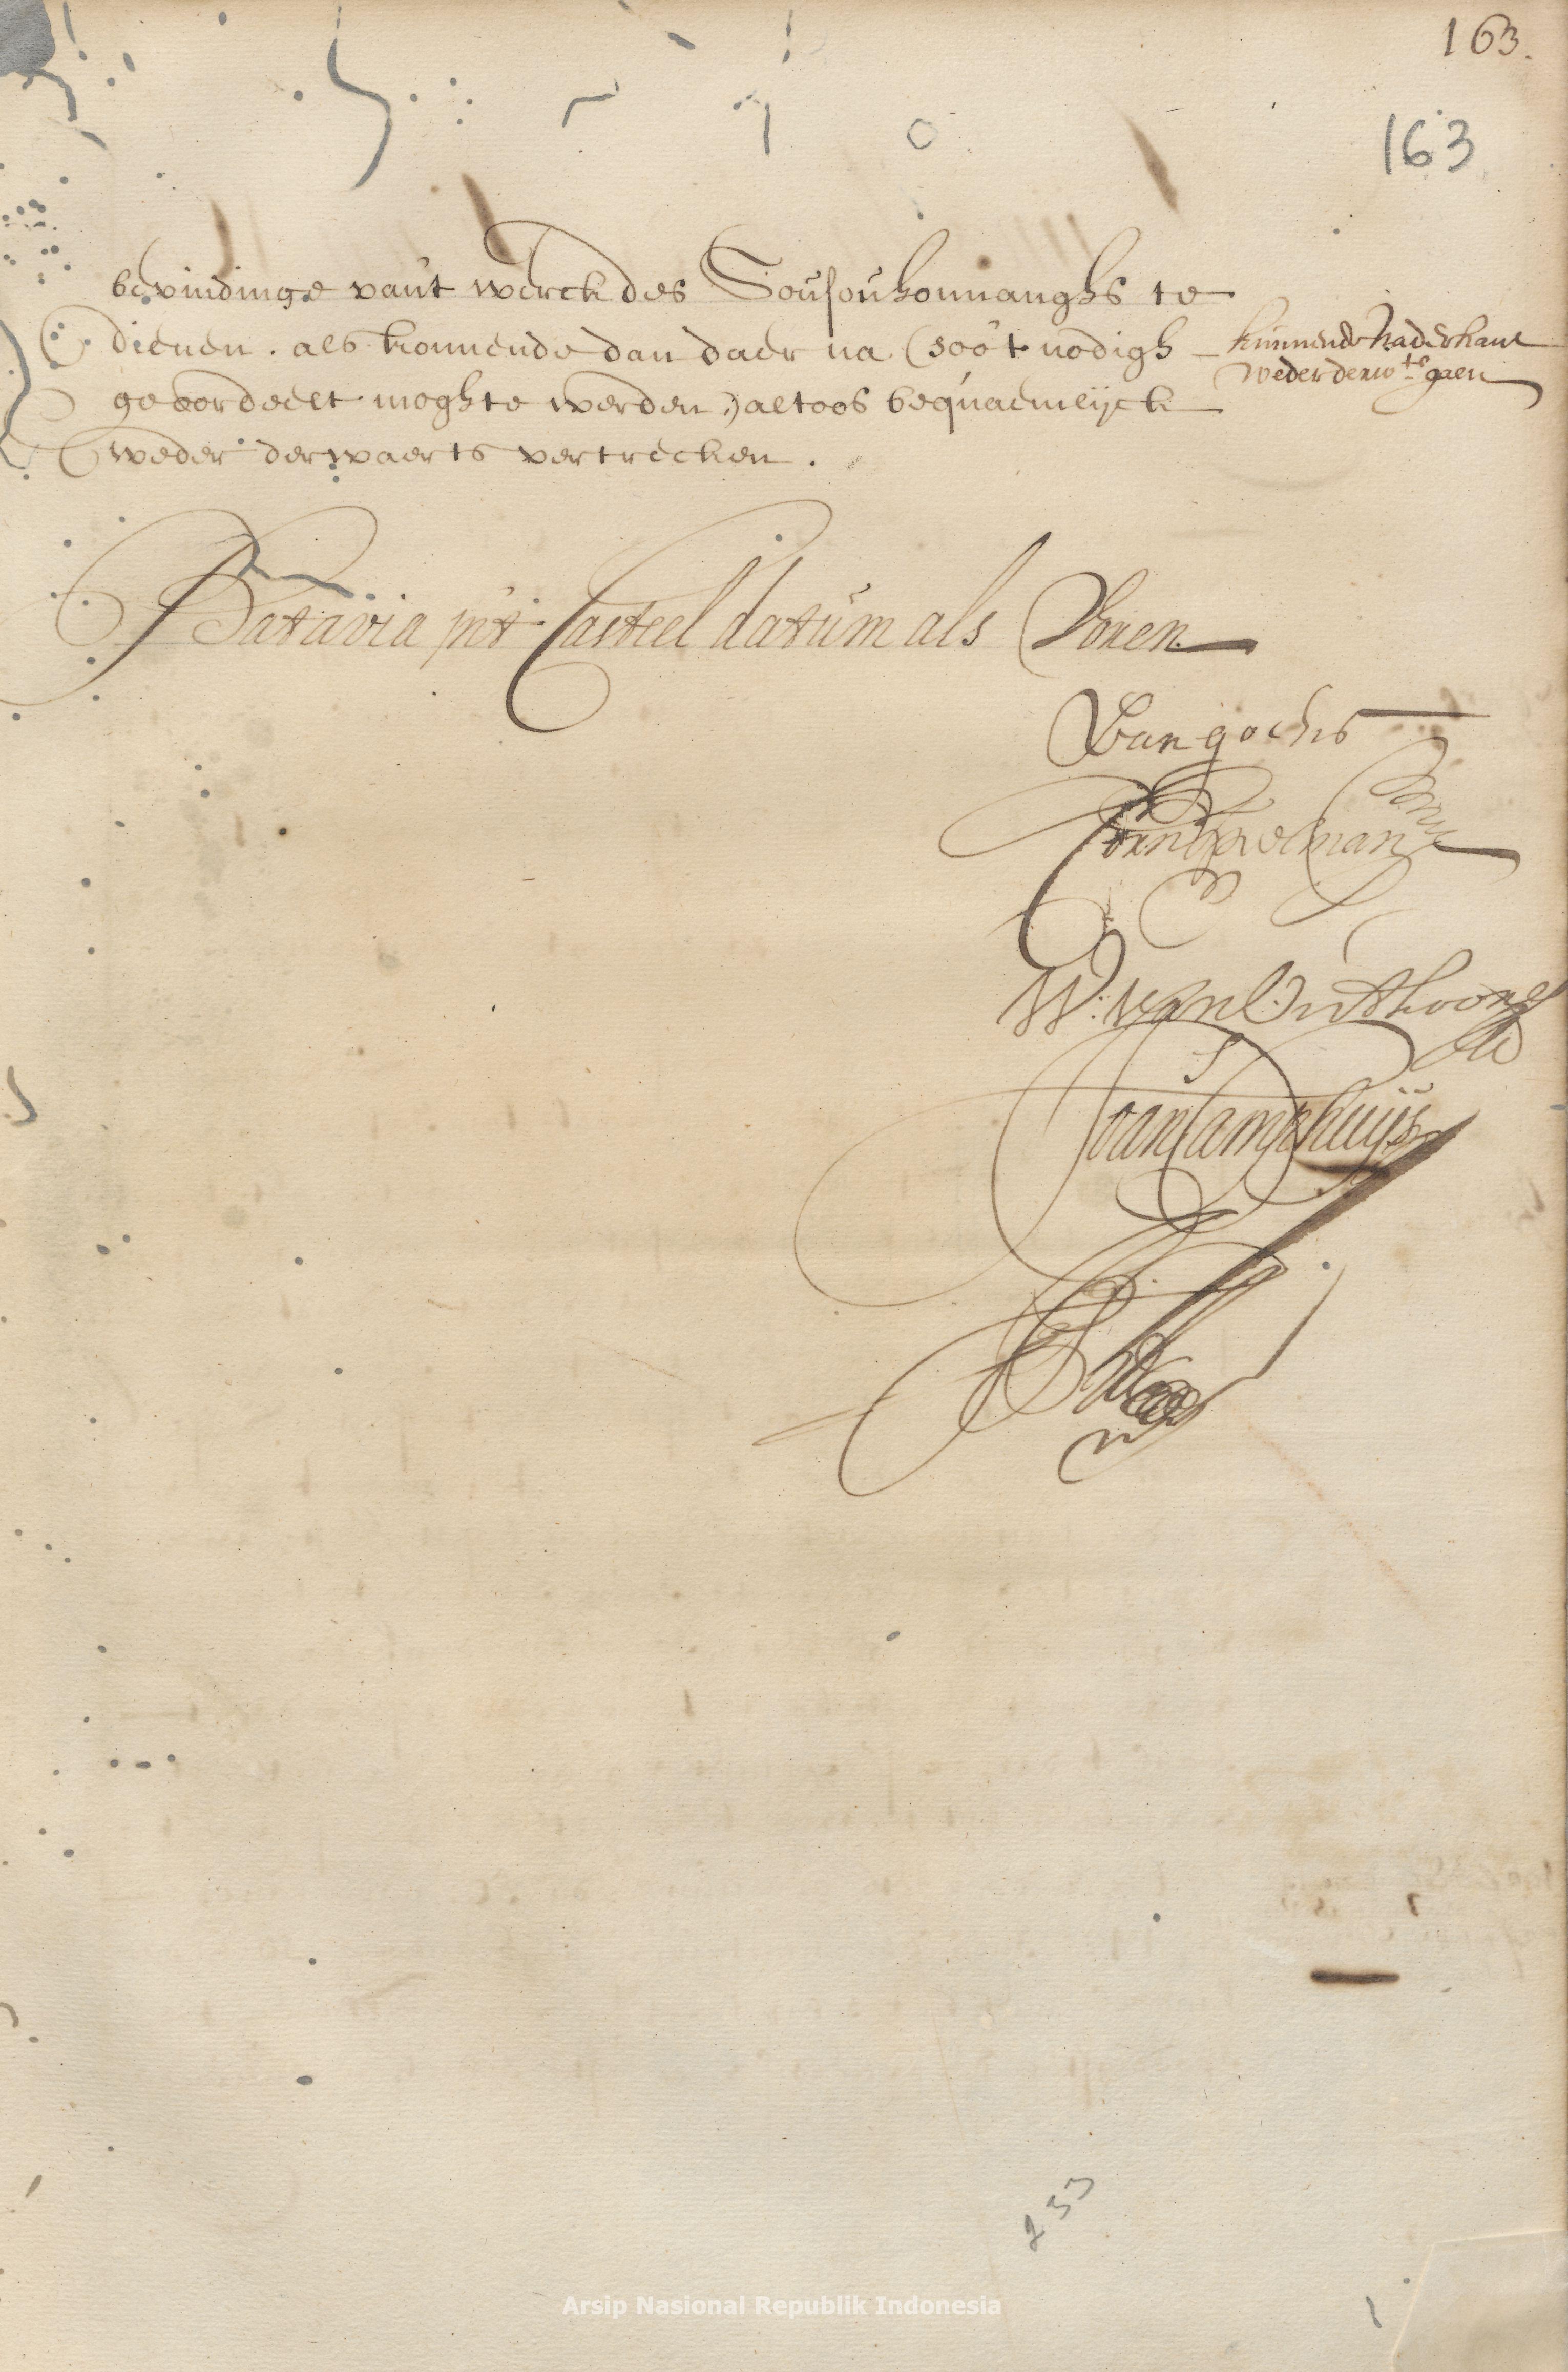 163.
163
bevindinge vant werck des Sousouhonnanghs te
dienen. als konnende dan daer na (soo't nodigh
geoordeelt moghte werden,) altoos bequaemelijck
weder derwaerts vertrecken.
kunnende naderhant
weder derw.ts gaen
Batavia int Casteel datum als Voren.
Van goens
W: van Outhoorn
Joan Camphuijs
233
Arsip Nasional Republik Indonesia